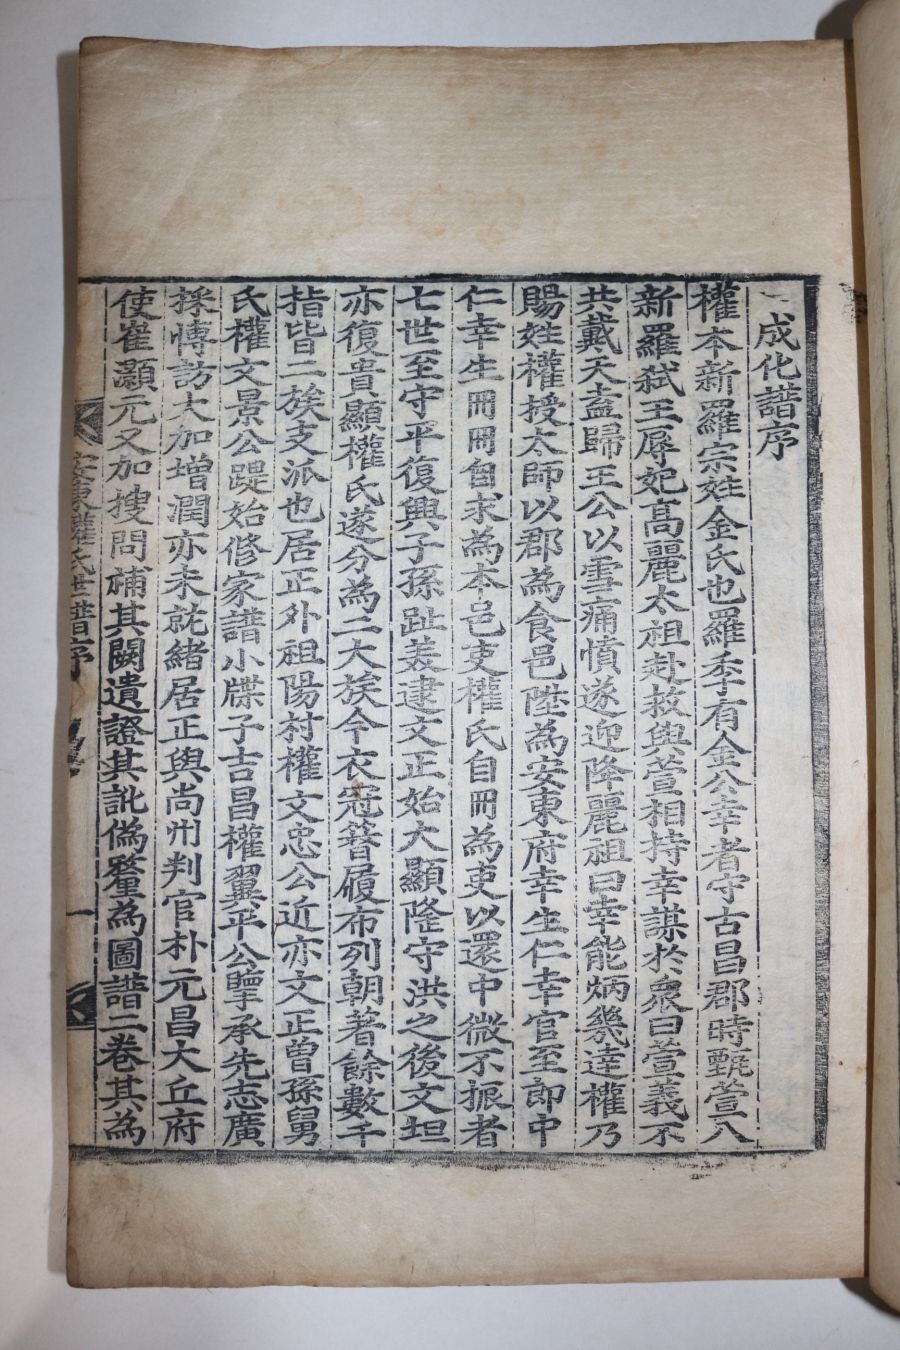 成化譜序
權本新羅宗姓金氏也羅季有金公幸者守古昌郡時甄萱入
新羅弑王辱妃高麗太祖赴救與萱相持幸謀於衆曰萱義不
共戴天盍歸王公以雪痛憤遂迎降麗祖曰幸能炳幾達權乃
賜姓權授太師以郡爲食邑陞爲安東府幸生仁幸官至郎中
仁幸生冊冊自求爲本邑吏權氏自冊爲吏以還中微不振者
七世至守平復興子孫趾美逮文正始大顯隆守洪之後文坦
亦復貴顯權氏遂分爲二大族今衣冠簪履布列朝著餘數千
指皆二族支派也居正外祖陽村權文忠公近亦文正曾孫舅
氏權文景公踶始修家譜小牒子吉昌權翼平公擥承先志廣
採愽訪大加增潤亦未就緒居正與尙州判官朴元昌大丘府
使崔灝元又加搜問補其闕遺證其訛僞釐爲圖譜二卷其爲
安東權氏世譜序
一